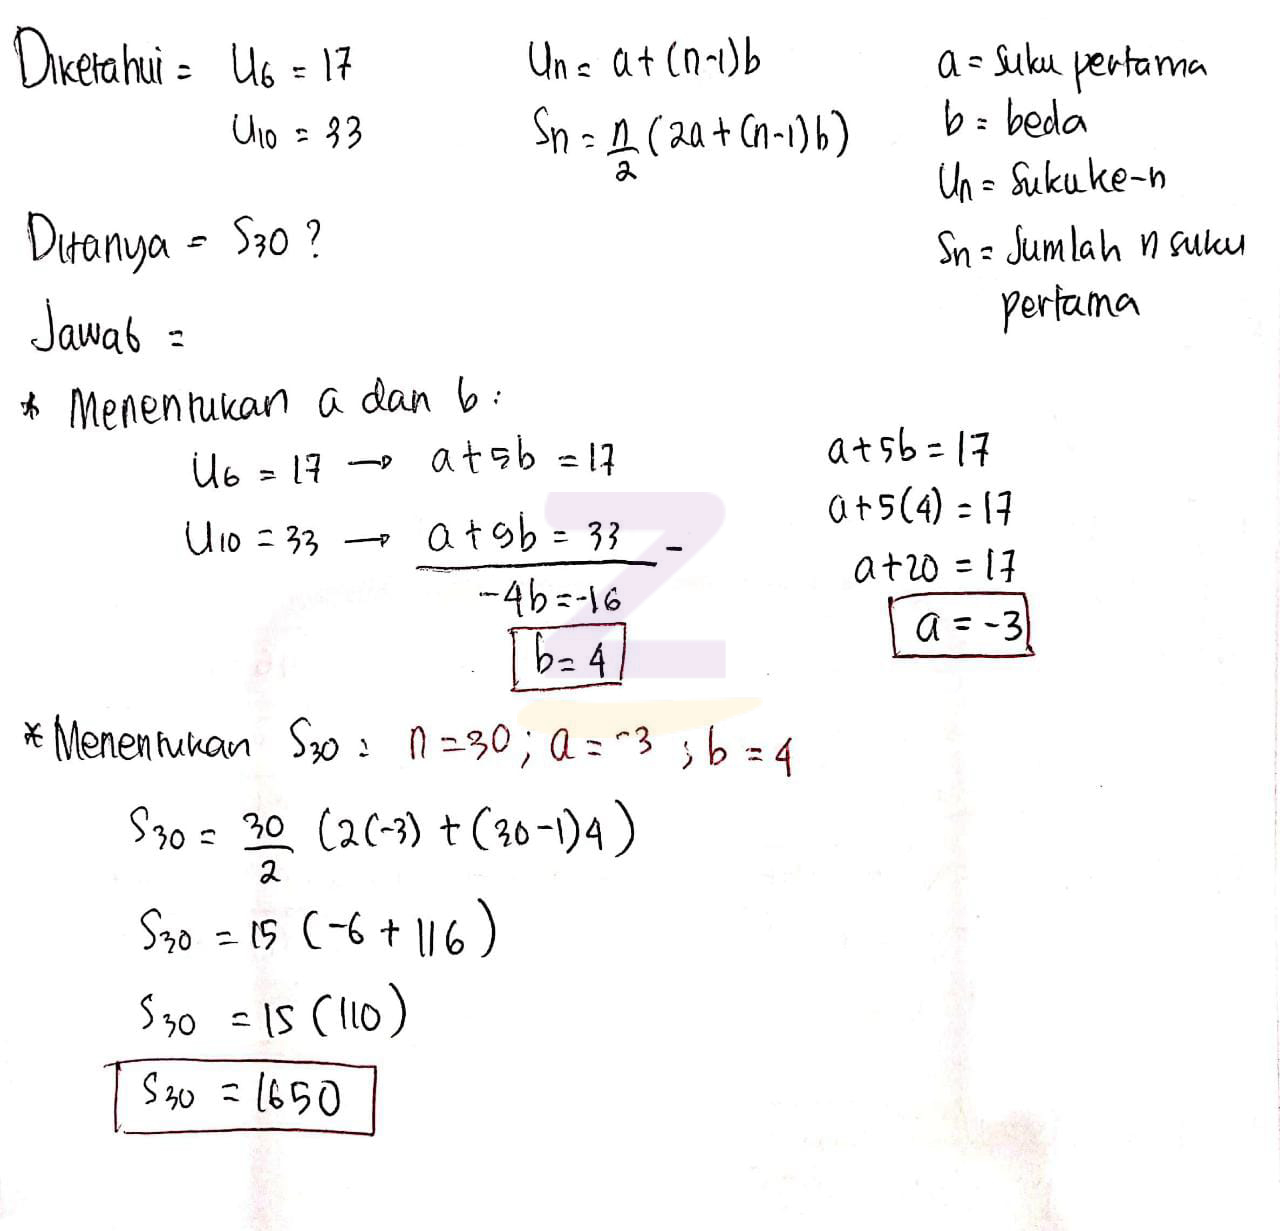 Diketahui = U6 = 17
U10 = 33
Un = a + (n-1)b
Sn = n/2 (2a + (n-1)b)
a = Suku pertama
b = beda
Un = Suku ke-n
Sn = Jumlah n suku
pertama
Ditanya = S30 ?
Jawab =
* Menentukan a dan b :
U6 = 17 → a + 5b = 17
U10 = 33 → a + 9b = 33 -
-4b = -16
b = 4
a + 5b = 17
a + 5(4) = 17
a + 20 = 17
a = -3
* Menentukan S30 : n = 30 ; a = -3 ; b = 4
S30 = 30/2 (2(-3) + (30-1)4)
S30 = 15 (-6 + 116)
S30 = 15 (110)
S30 = 1650